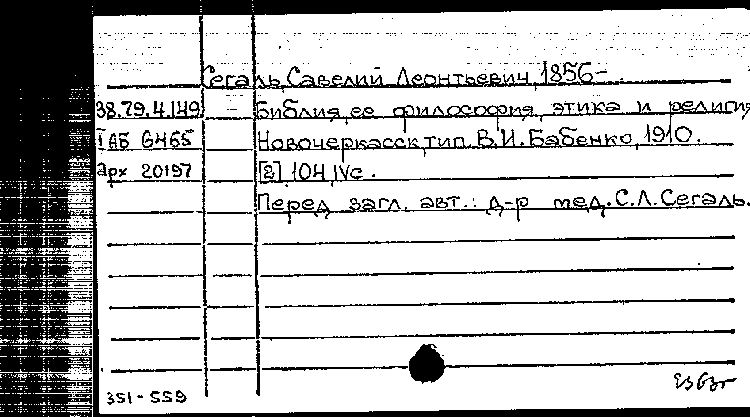 Сегаль, Савелий Леонтьевич, 1856-
38.79.4.149 - Библия, ее философия, этика и религия
IАБ 6465 Новочеркасск, тип. В.И. Бабенко, 1910.
арх 20197 [2], 104, IV с.
Перед загл. авт.: д-р мед. С.Л. Сегаль.
351-559